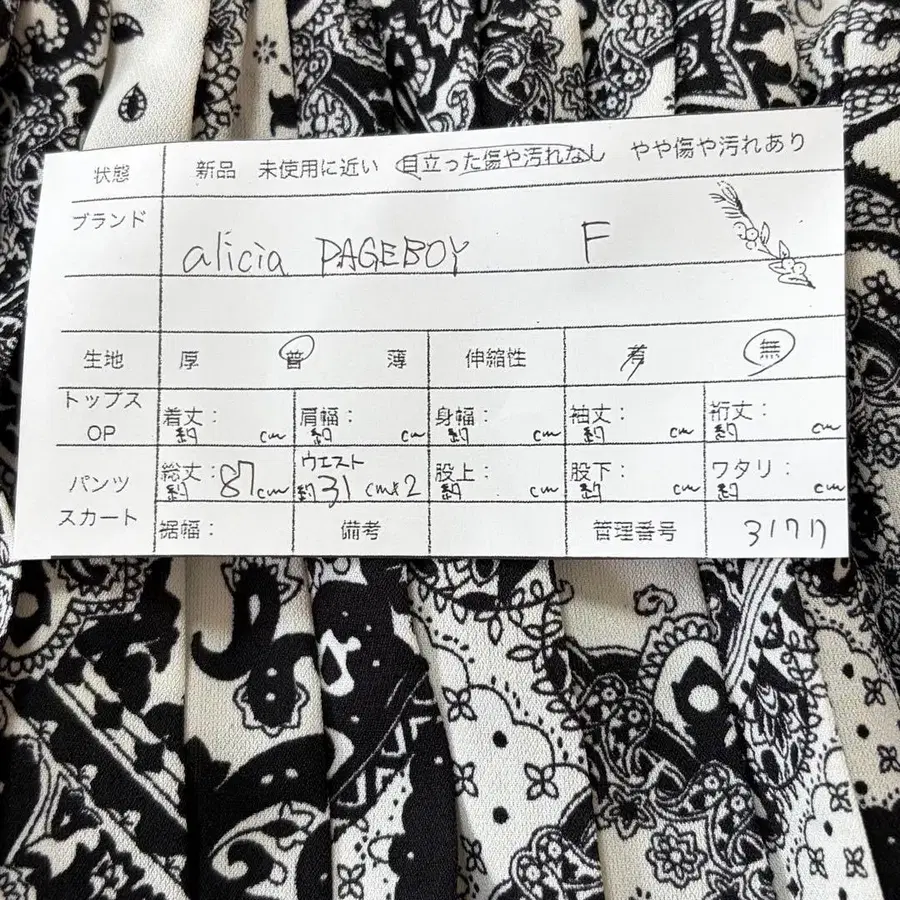 状態 新品 未使用に近い 目立った傷や汚れなし やや傷や汚れあり
ブランド alicia PAGEBOY F
生地 厚 普 薄 伸縮性 有 無
トップス OP 着丈： 約 cm 肩幅： 約 cm 身幅： 約 cm 袖丈： 約 cm 裄丈： 約 cm
パンツ スカート 総丈： 約 87cm ウエスト 約31cm×2 股上： 約 cm 股下： 約 cm ワタリ： 約 cm
裾幅： 備考 管理番号 3177